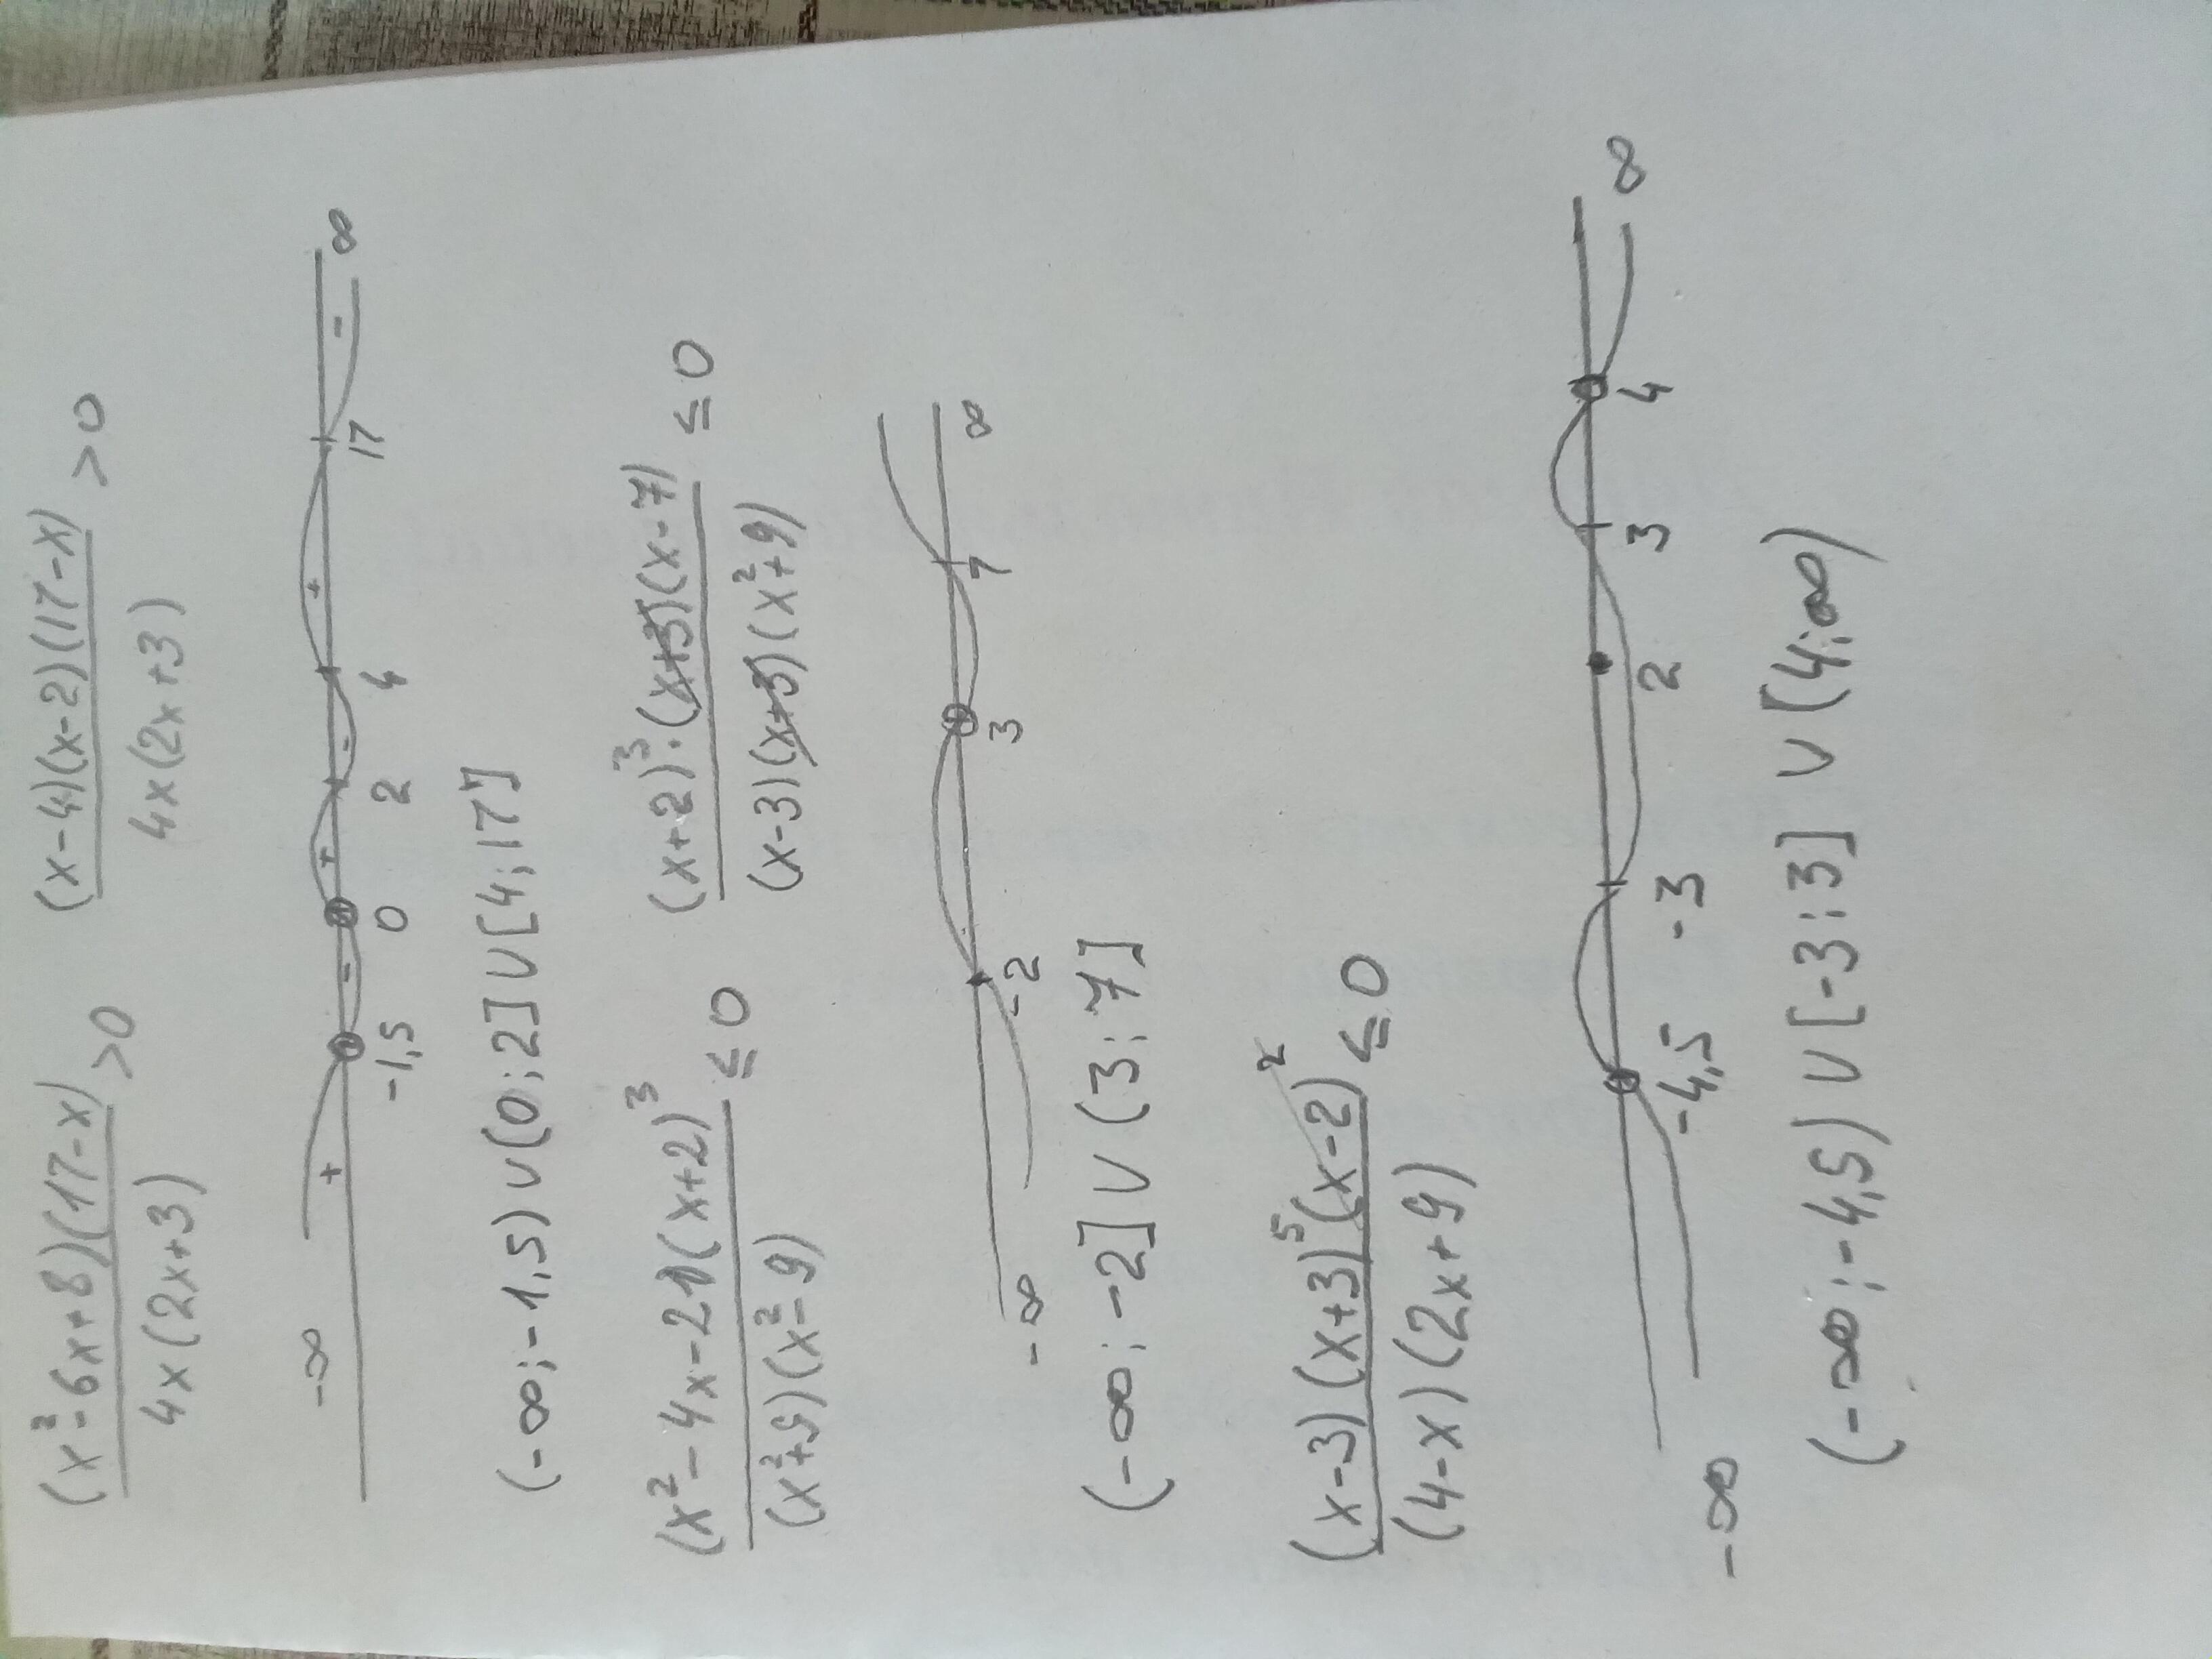 (x²-6x+8)(17-x)/4x(2x+3) >0 (x-4)(x-2)(17-x)/4x(2x+3) >0
-∞ + -1,5 - 0 + 2 - 4 + 17 - ∞
(-∞;-1,5)∪(0;2]∪[4;17]
(x²-4x-21)(x+2)³/(x²+9)(x²-9) ≤0 (x+2)³·(x+3)(x-7)/(x-3)(x+3)(x²+9) ≤0
-∞ -2 3 7 ∞
(-∞;-2]∪(3;7]
(x-3)(x+3)⁵(x-2)²/(4-x)(2x+9) ≤0
-∞ -4,5 -3 2 3 4 ∞
(-∞;-4,5)∪[-3;3]∪(4;∞)